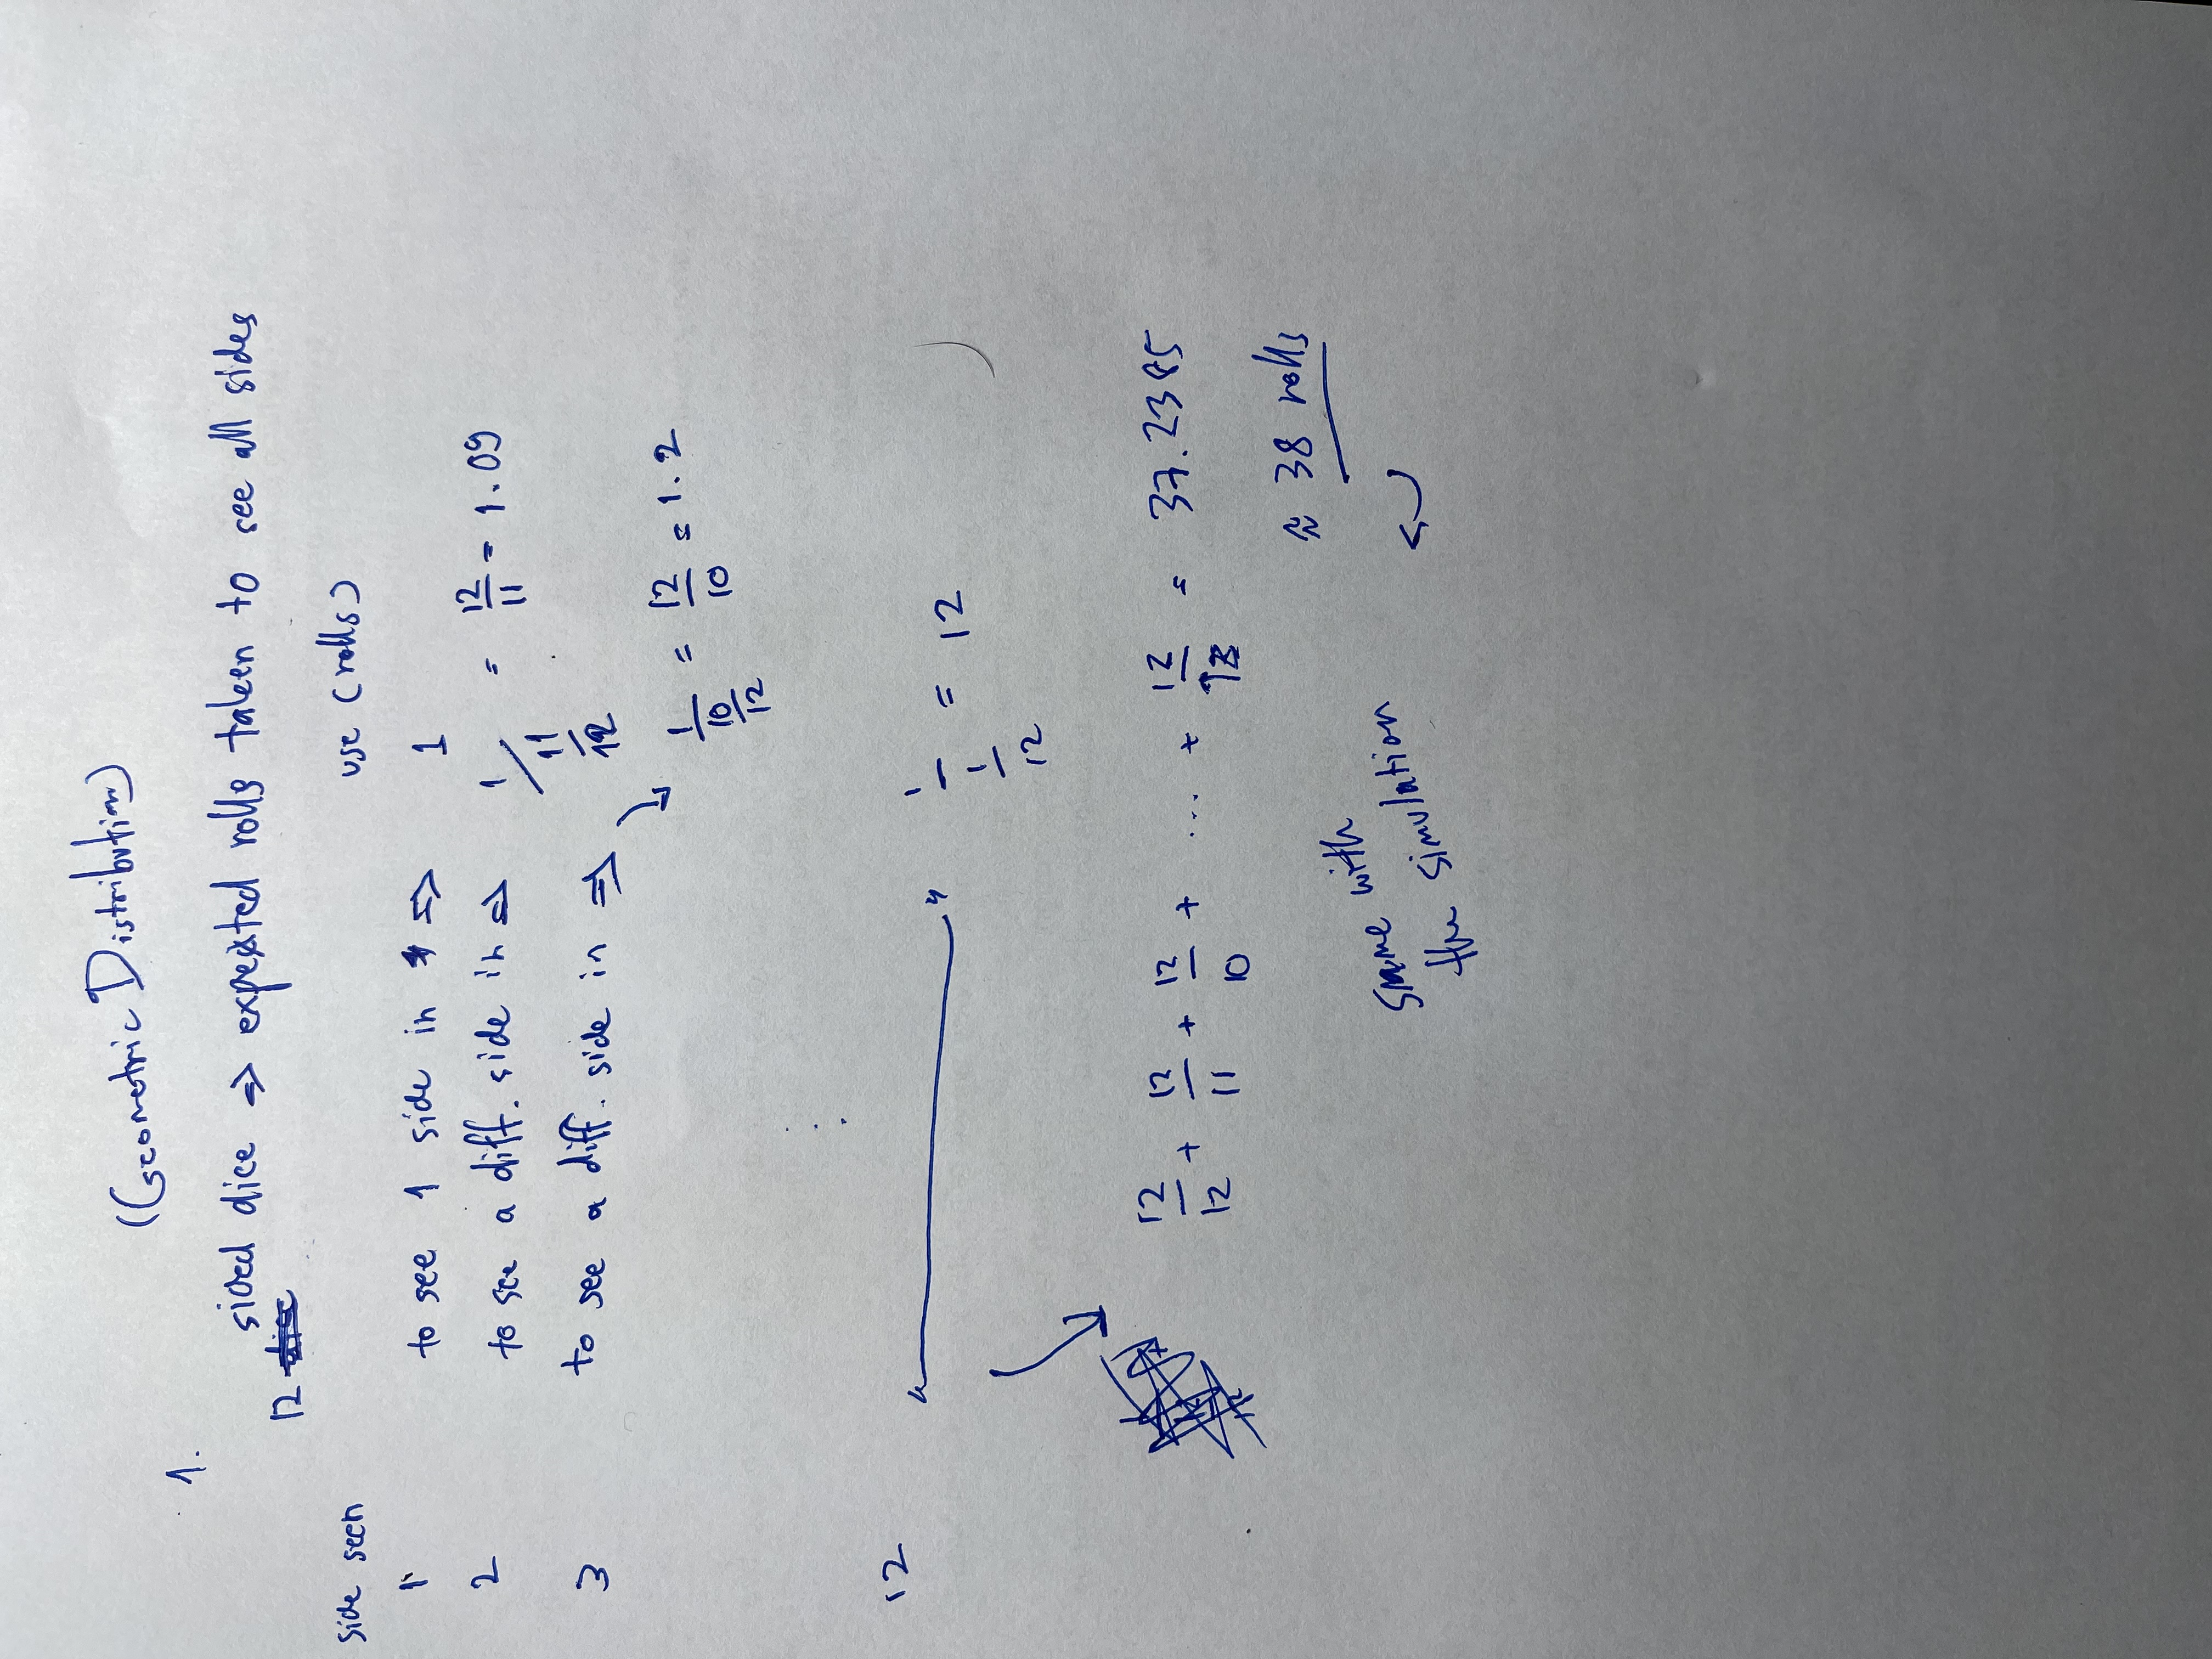 (Geometric Distribution)
1.
12 sided dice ⇒ expected rolls taken to see all sides
side seen use (rolls)
1 to see 1 side in ⇒ 1
2 to see a diff. side in ⇒ 1/(11/12) = 12/11 = 1.09
3 to see a diff. side in ⇒
1/(10/12) = 12/10 = 1.2
⋮
12 " " 1/(1/12) = 12
12/12 + 12/11 + 12/10 + ... + 12/1 = 37.2385
≈ 38 rolls
same with
the simulation